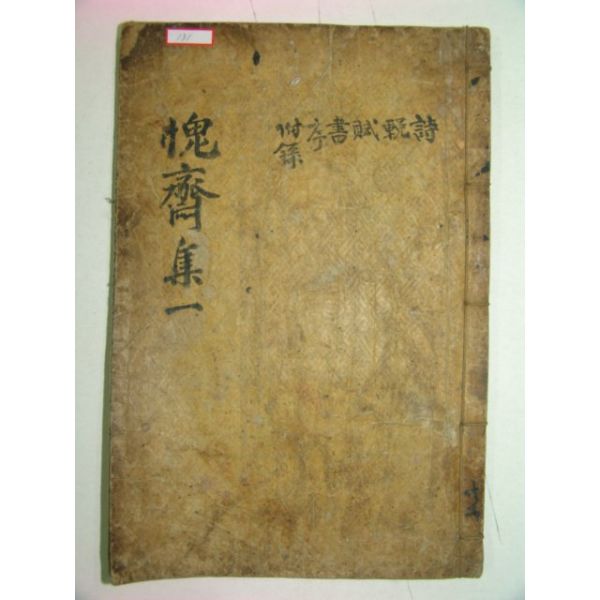 愧齋集一
詩輓賦書序附錄
131